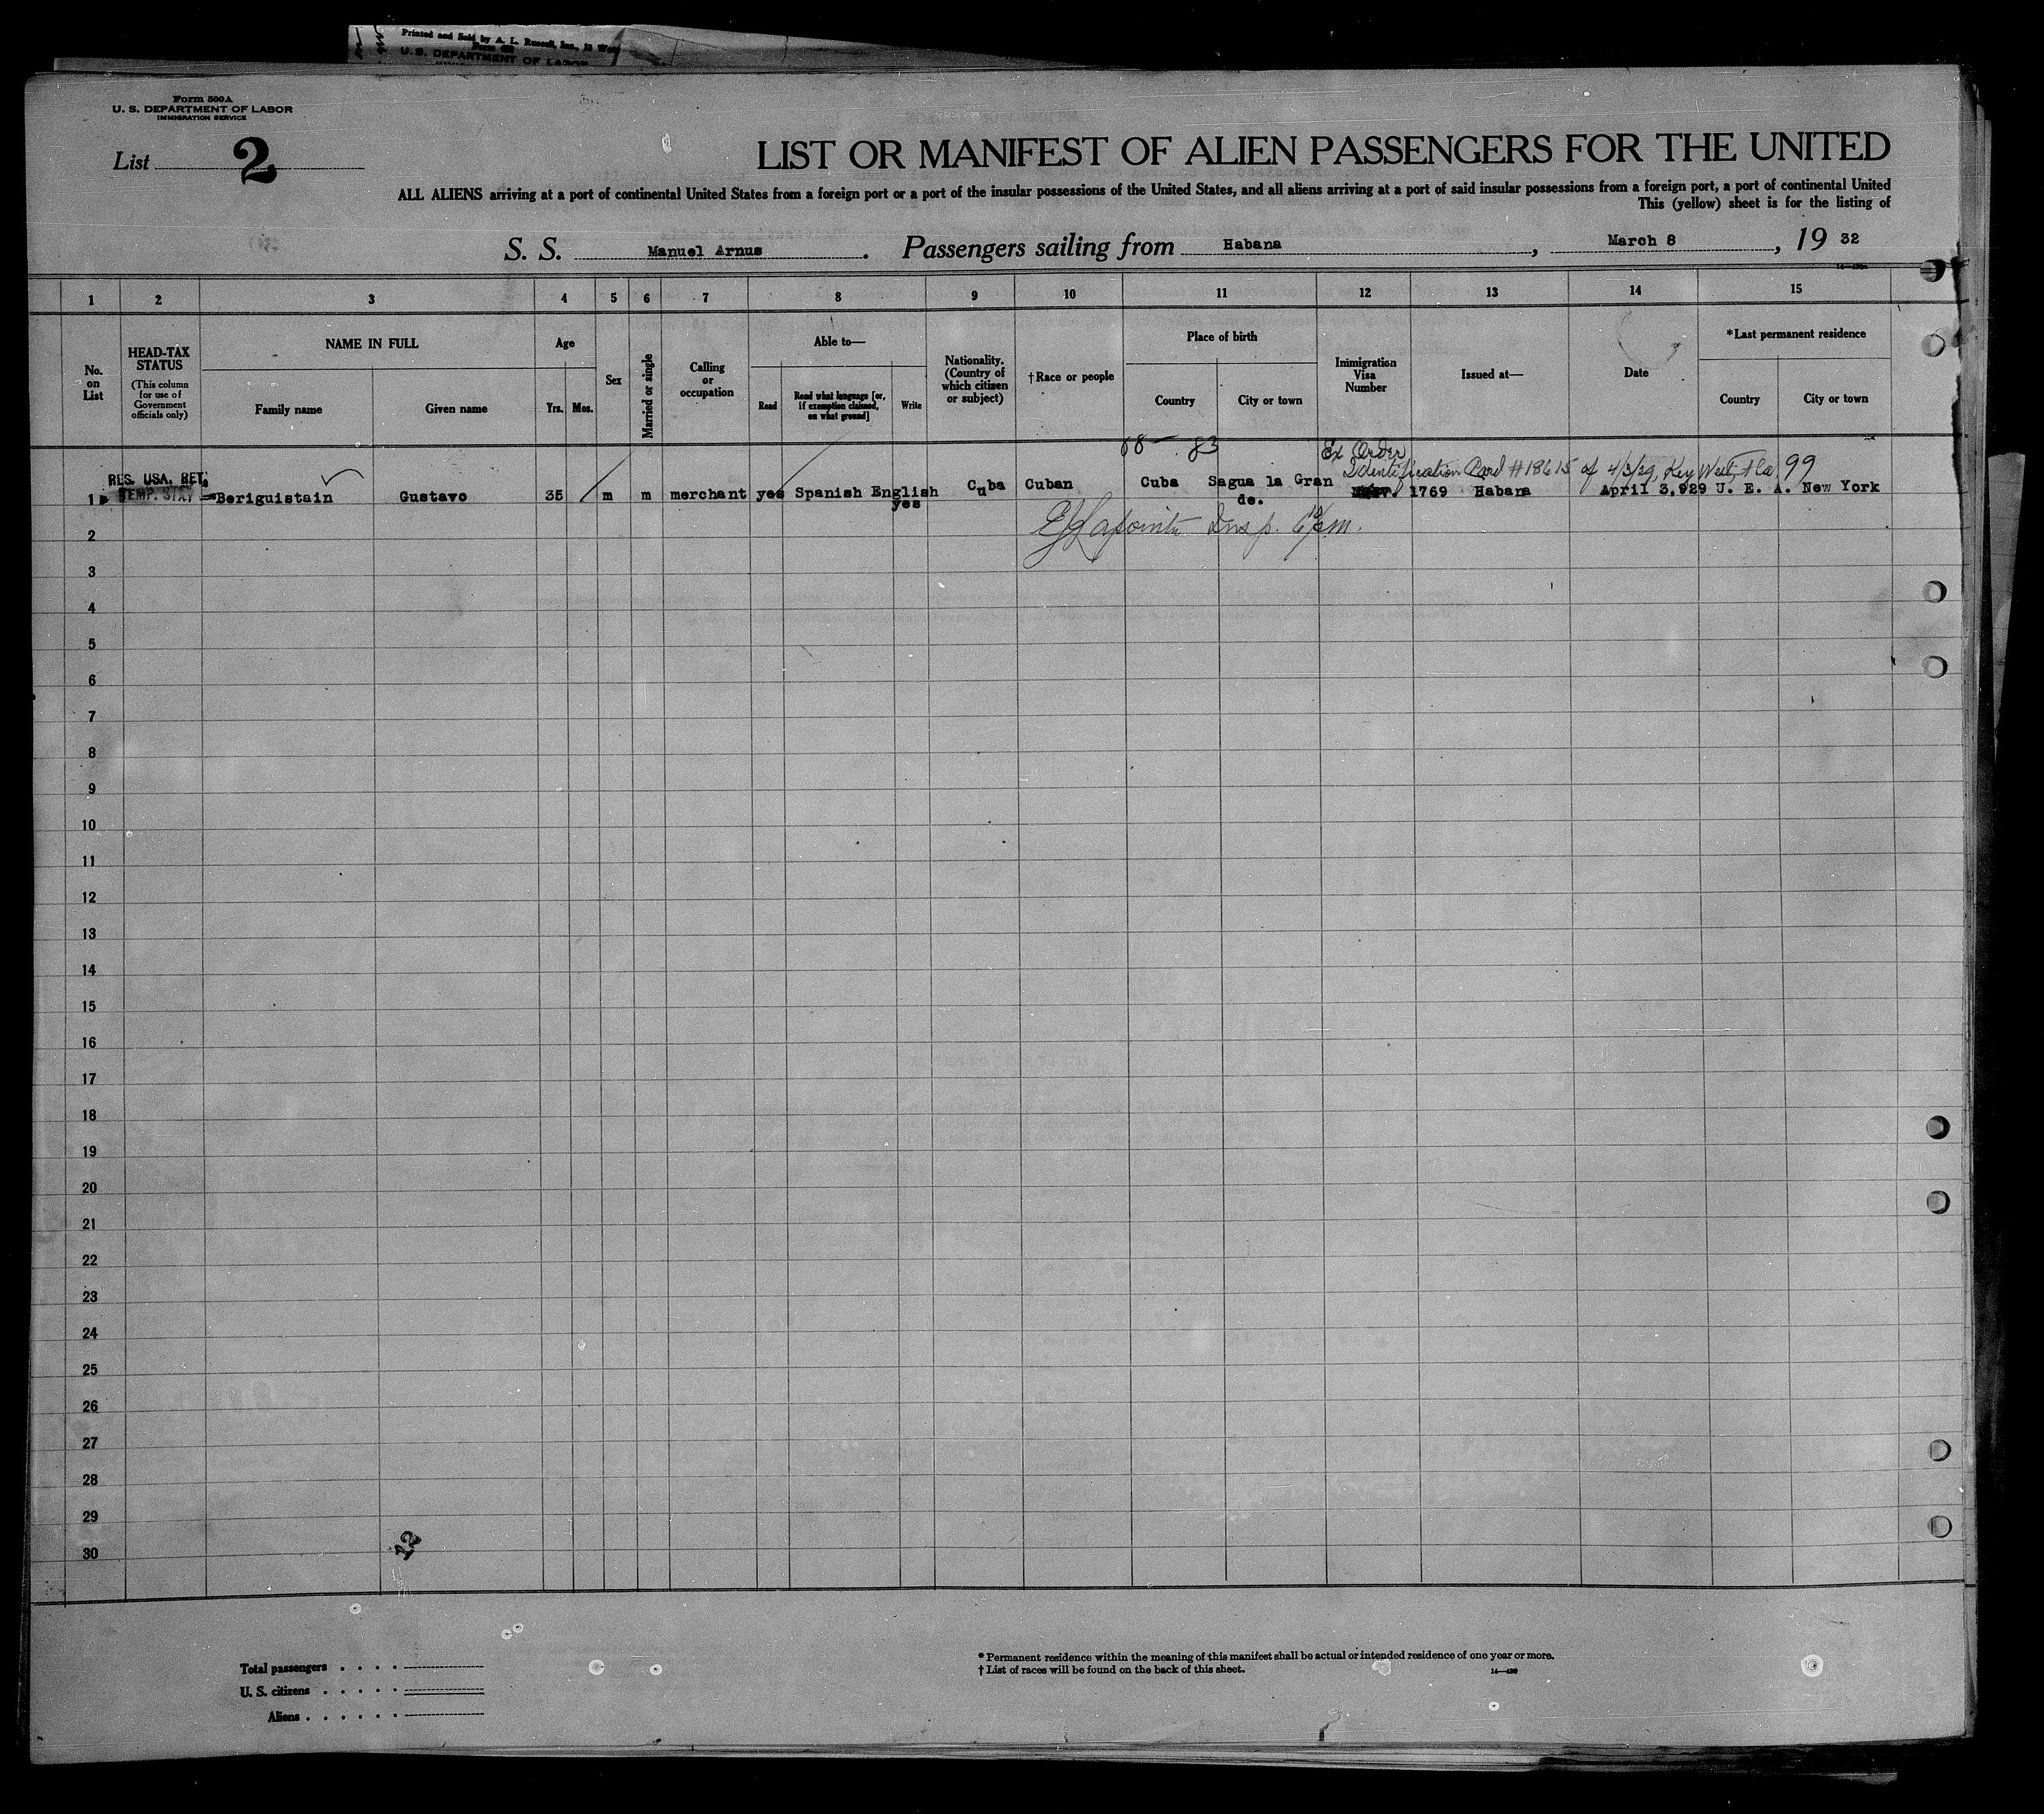 Printed and Sold by A. L. Russell, Inc., 12
U. S. DEPARTMENT OF LABOR
Form 500A
U. S. DEPARTMENT OF LABOR
IMMIGRATION SERVICE
List 2
LIST OR MANIFEST OF ALIEN PASSENGERS FOR THE UNITED
ALL ALIENS arriving at a port of continental United States from a foreign port or a port of the insular possessions of the United States, and all aliens arriving at a port of said insular possessions from a foreign port, a port of continental United
This (yellow) sheet is for the listing of
S. S. Manuel Arnus. Passengers sailing from Habana, March 8, 19 32
1 2 3 4 5 6 7 8 9 10 11 12 13 14 15
No. on List
HEAD-TAX STATUS (This column for use of Government officials only)
NAME IN FULL
Family name
Given name
Age
Yrs.
Mos.
Sex
Married or single
Calling or occupation
Able to—
Read
Read what language [or, if exemption claimed, on what ground]
Write
Nationality. (Country of which citizen or subject)
†Race or people
Place of birth
Country
City or town
Immigration Visa Number
Issued at—
Date
*Last permanent residence
Country
City or town
83
Ex Order
RES. USA. RET.
Identification Card #18615 of 4/3/29, Key West, Fla. 99
1 TEMP. STAY Beriguistain Gustavo 35 m m merchant yes Spanish English yes Cuba Cuban Cuba Sagua la Gran de. 1769 Habana April 3,929 U. E. A. New York
2
Insp.
3
4
5
6
7
8
9
10
11
12
13
14
15
16
17
18
19
20
21
22
23
24
25
26
27
28
29
30
12
Total passengers . . . .
U. S. citizens . . . . .
Aliens . . . . . .
* Permanent residence within the meaning of this manifest shall be actual or intended residence of one year or more.
† List of races will be found on the back of this sheet.